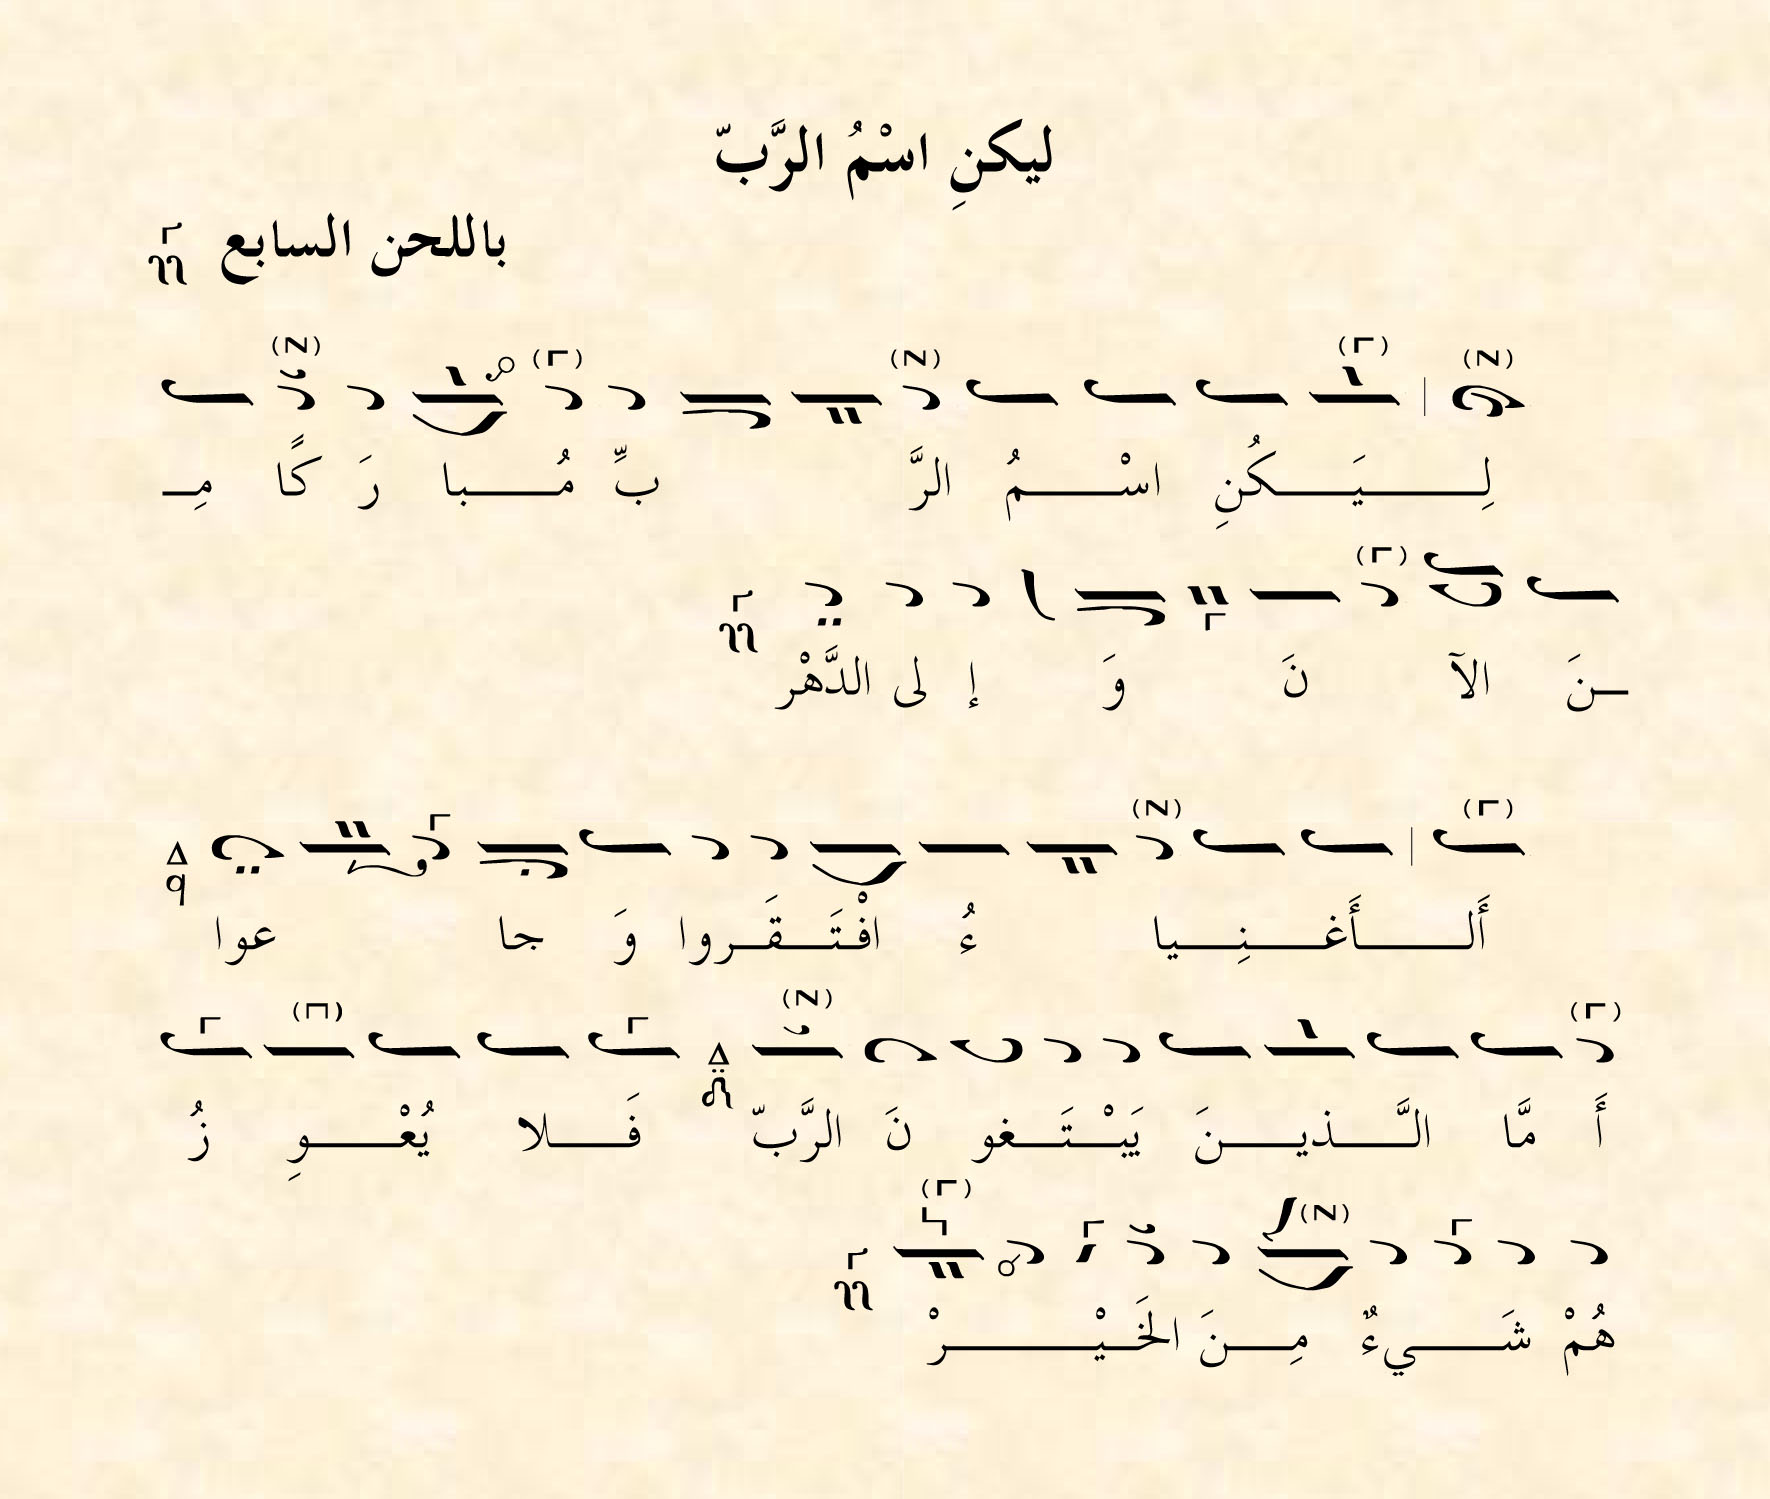 ليكنِ اسْمُ الرَّبّ
باللحن السابع
لِـــيَـــكُنِ اسْـــمُ الرَّ بِّ مُـــبا رَ كًا مِـ
ـنَ الآ نَ وَ إ لى الدَّهْر
أَلـــأَغـــنِـــيا ءُ افْتَـــقَـــروا وَ جا عوا
أَ مَّا الَّـــذيـــنَ يَبْـــتَـــغو نَ الرَّبّ فَـــلا يُعْـــوِ زُ
هُمْ شَـــيءٌ مِـــنَ الخَـــيْـــرْ